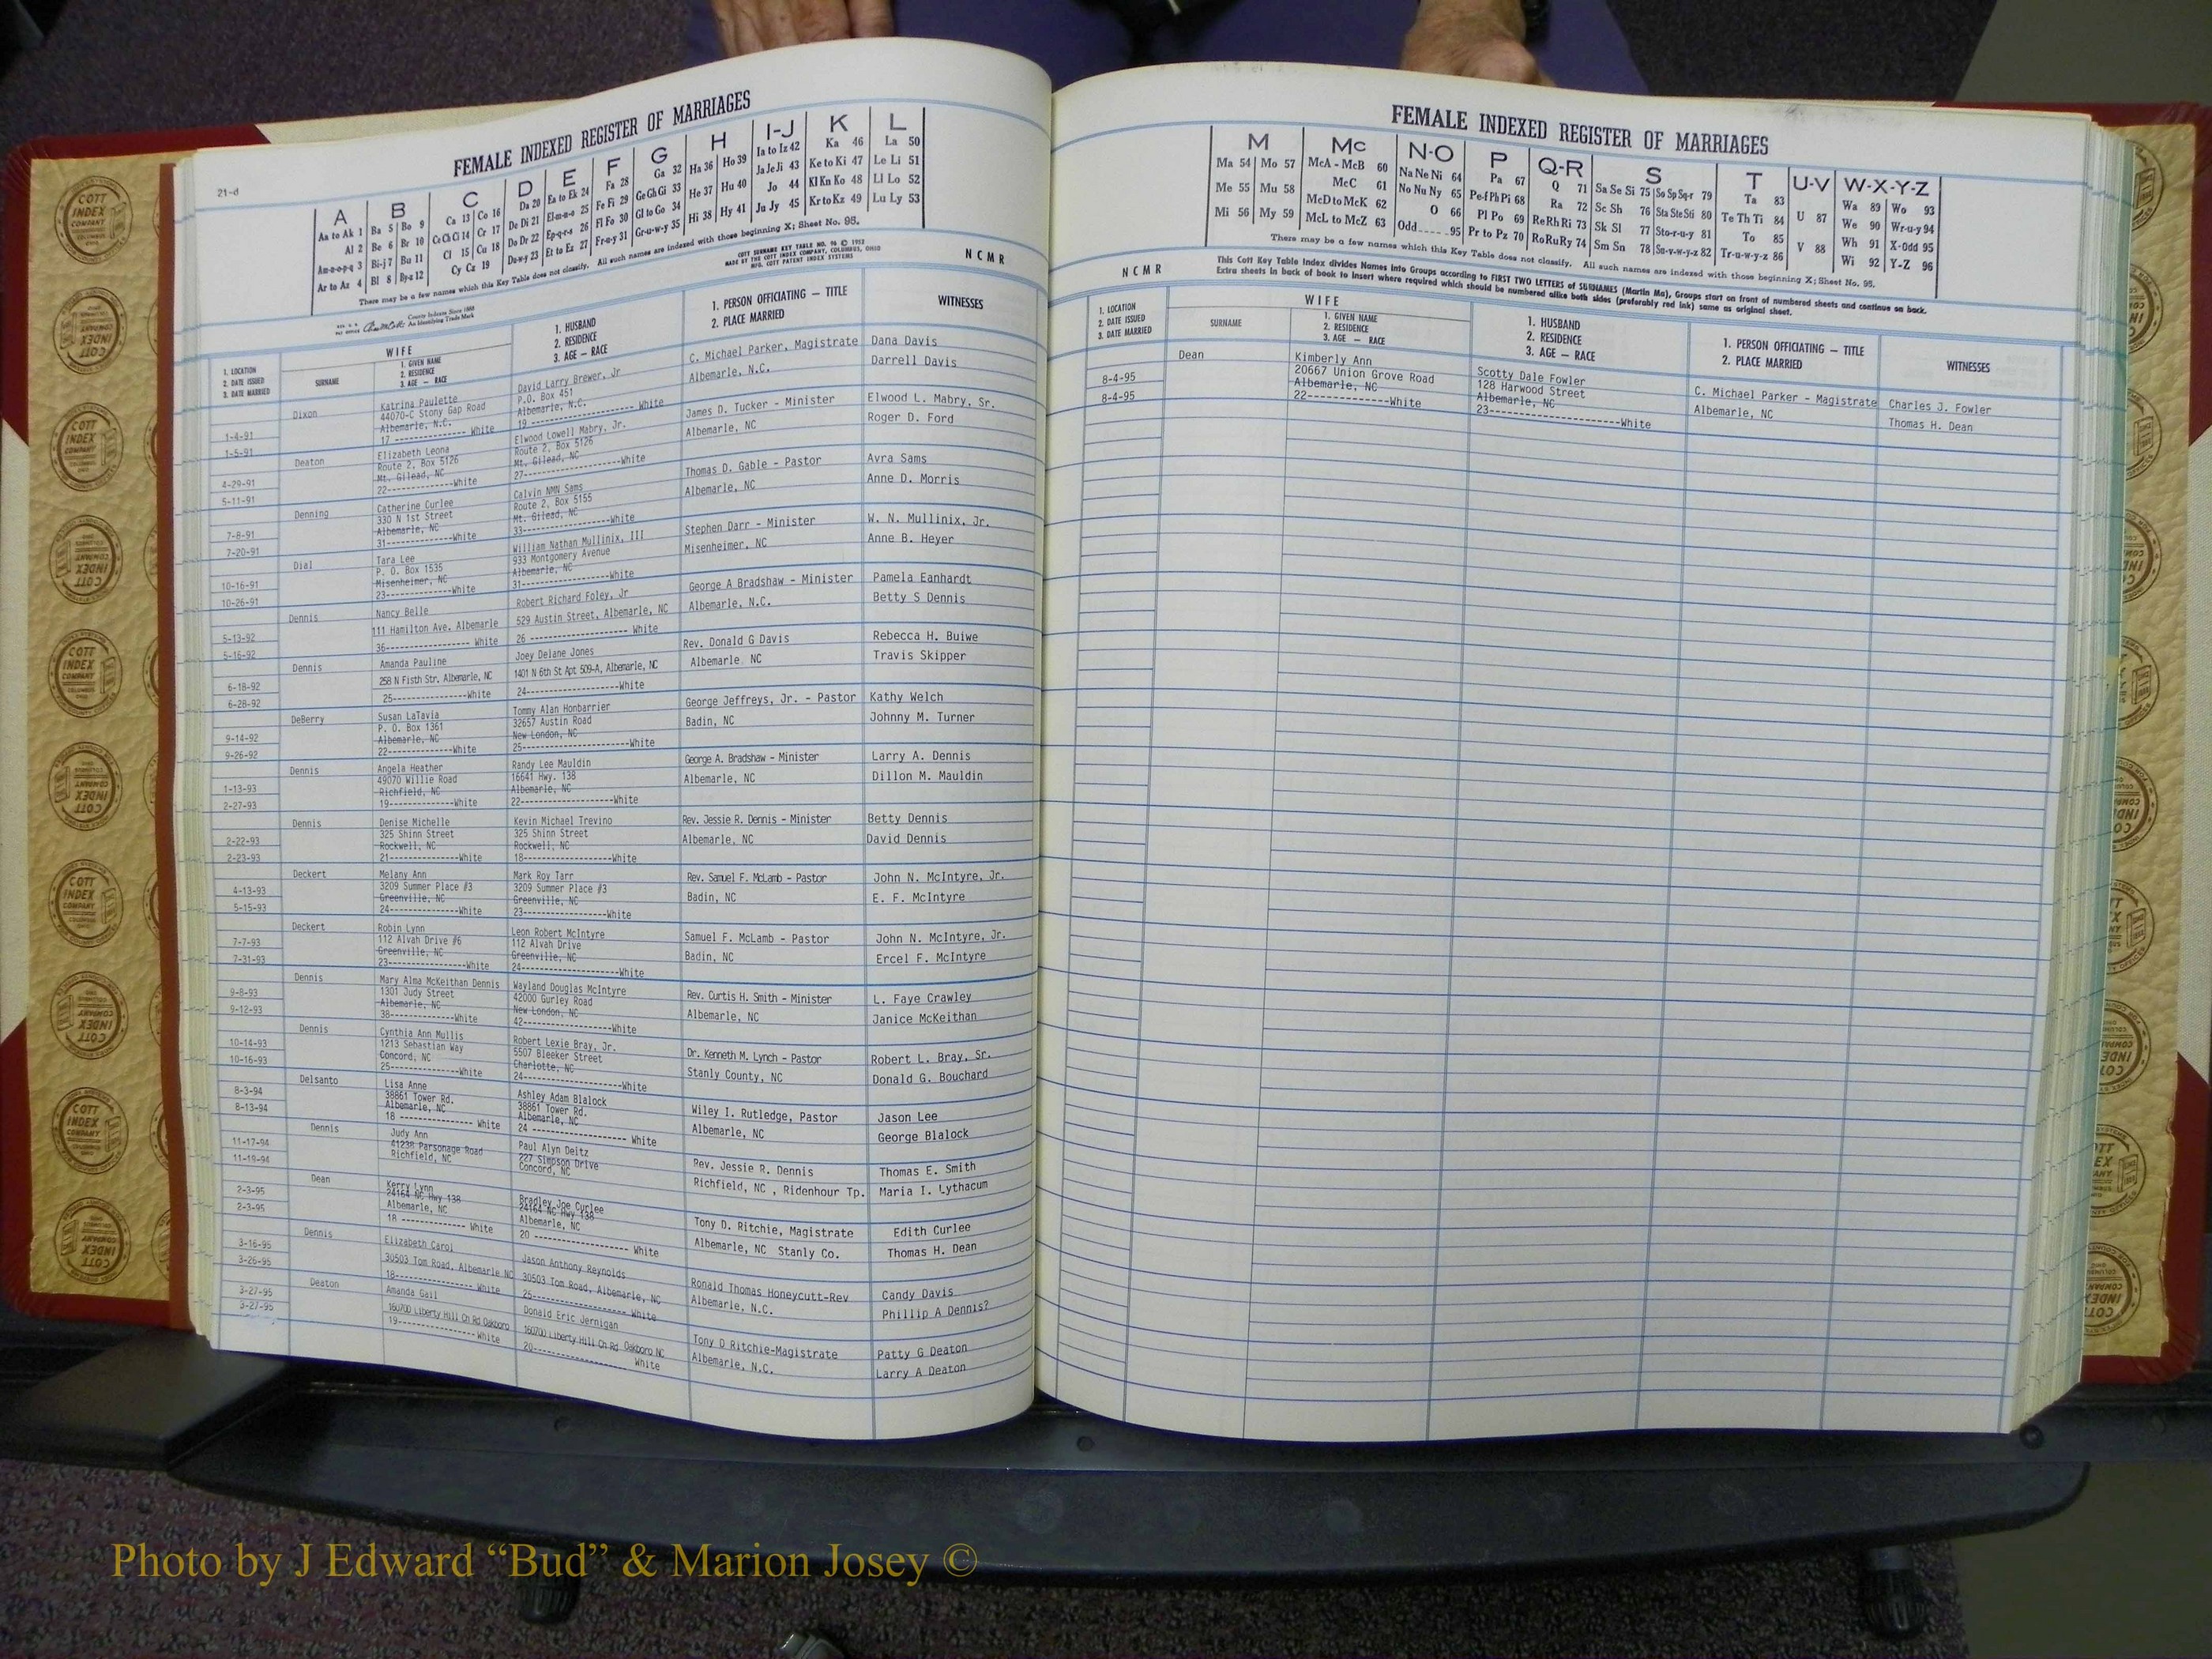 FEMALE INDEXED REGISTER OF MARRIAGES
21-d
A B C D E F G H I-J K L
Aa to Ak 1 Ba 5 Bo 9 Ca 13 Co 16 Da 20 Ea to Ek 24 Fa 28 Ga 32 Ha 36 Ho 39 Ia to Iz 42 Ka 46 La 50
Al 2 Be 6 Br 10 Ce Ch Ci 14 Cr 17 De Di 21 El-m-n-o 25 Fe Fi 29 Ge Gh Gi 33 He 37 Hu 40 Ja Je Ji 43 Ke to Ki 47 Le Li 51
Am-n-o-p-q 3 Bi-j 7 Bu 11 Cl 15 Cu 18 Do Dr 22 Ep-q-r-s 26 Fl Fo 30 Gl to Go 34 Hi 38 Hy 41 Jo 44 Kl Kn Ko 48 Ll Lo 52
Ar to Az 4 Bl 8 By-z 12 Cy Cz 19 Du-w-y 23 Et to Ez 27 Fr-u-y 31 Gr-u-w-y 35 Ju Jy 45 Kr to Kz 49 Lu Ly 53
There may be a few names which this Key Table does not classify. All such names are indexed with those beginning X; Sheet No. 95.
COTT SURNAME KEY TABLE NO. 96 © 1952
MADE BY THE COTT INDEX COMPANY, COLUMBUS, OHIO
MFG. COTT PATENT INDEX SYSTEMS
N C M R
County Indexes Since 1888
An Identifying Trade Mark
1. LOCATION
2. DATE ISSUED
3. DATE MARRIED
WIFE
SURNAME
1. GIVEN NAME
2. RESIDENCE
3. AGE — RACE
1. HUSBAND
2. RESIDENCE
3. AGE — RACE
1. PERSON OFFICIATING — TITLE
2. PLACE MARRIED
WITNESSES
Dixon Katrina Paulette David Larry Brewer, Jr C. Michael Parker, Magistrate Dana Davis
44070-C Stony Gap Road P.O. Box 451 Albemarle, N.C. Darrell Davis
1-4-91 Albemarle, N.C. Albemarle, N.C.
1-5-91 17 ------------ White 19 ------------ White
Deaton Elizabeth Leona Elwood Lowell Mabry, Jr. James D. Tucker - Minister Elwood L. Mabry, Sr.
Route 2, Box 5126 Route 2, Box 5126 Albemarle, NC Roger D. Ford
4-29-91 Mt. Gilead, NC Mt. Gilead, NC
5-11-91 22------------White 27------------White
Denning Catherine Curlee Calvin NMN Sams Thomas D. Gable - Pastor Avra Sams
330 N 1st Street Route 2, Box 5155 Albemarle, NC Anne D. Morris
7-8-91 Albemarle, NC Mt. Gilead, NC
7-20-91 31------------White 33------------White
Dial Tara Lee William Nathan Mullinix, III Stephen Darr - Minister W. N. Mullinix, Jr.
P. O. Box 1535 933 Montgomery Avenue Misenheimer, NC Anne B. Heyer
10-16-91 Misenheimer, NC Albemarle, NC
10-26-91 23------------White 31------------White
Dennis Nancy Belle Robert Richard Foley, Jr George A Bradshaw - Minister Pamela Eanhardt
5-13-92 111 Hamilton Ave. Albemarle 529 Austin Street, Albemarle, NC Albemarle, N.C. Betty S Dennis
5-16-92 36------------ White 26 ------------ White
Dennis Amanda Pauline Joey Delane Jones Rev. Donald G Davis Rebecca H. Buiwe
6-18-92 258 N Fisth Str. Albemarle, NC 1401 N 6th St Apt 509-A, Albemarle, NC Albemarle NC Travis Skipper
6-28-92 25------------White 24------------White
DeBerry Susan LaTavia Tommy Alan Honbarrier George Jeffreys, Jr. - Pastor Kathy Welch
P. O. Box 1361 32657 Austin Road Badin, NC Johnny M. Turner
9-14-92 Albemarle, NC New London, NC
9-26-92 22------------White 25------------White
Dennis Angela Heather Randy Lee Mauldin George A. Bradshaw - Minister Larry A. Dennis
49070 Willie Road 16641 Hwy. 138 Albemarle, NC Dillon M. Mauldin
1-13-93 Richfield, NC Albemarle, NC
2-27-93 19------------White 22------------White
Dennis Denise Michelle Kevin Michael Trevino Rev. Jessie R. Dennis - Minister Betty Dennis
2-22-93 325 Shinn Street 325 Shinn Street Albemarle, NC David Dennis
Rockwell, NC Rockwell, NC
2-23-93 21------------White 18------------White
Deckert Melany Ann Mark Roy Tarr Rev. Samuel F. McLamb - Pastor John N. McIntyre, Jr.
4-13-93 3209 Summer Place #3 3209 Summer Place #3 Badin, NC E. F. McIntyre
Greenville, NC Greenville, NC
5-15-93 24------------White 23------------White
Deckert Robin Lynn Leon Robert McIntyre Samuel F. McLamb - Pastor John N. McIntyre, Jr.
7-7-93 112 Alvah Drive #6 112 Alvah Drive Badin, NC Ercel F. McIntyre
Greenville, NC Greenville, NC
7-31-93 23------------White 24------------White
Dennis Mary Alma McKeithan Dennis Wayland Douglas McIntyre Rev. Curtis H. Smith - Minister L. Faye Crawley
9-8-93 1301 Judy Street 42000 Gurley Road Albemarle, NC Janice McKeithan
Albemarle, NC New London, NC
9-12-93 38------------White 42------------White
Dennis Cynthia Ann Mullis Robert Lexie Bray, Jr. Dr. Kenneth M. Lynch - Pastor Robert L. Bray, Sr.
10-14-93 1213 Sebastian Way 5507 Bleeker Street Stanly County, NC Donald G. Bouchard
10-16-93 Concord, NC Charlotte, NC
25------------White 24------------White
Delsanto Lisa Anne Ashley Adam Blalock Wiley I. Rutledge, Pastor Jason Lee
8-3-94 38861 Tower Rd. 38861 Tower Rd. Albemarle, NC George Blalock
8-13-94 Albemarle, NC Albemarle, NC
18 ------------ White 24 ------------ White
Dennis Judy Ann Paul Alyn Deitz Rev. Jessie R. Dennis Thomas E. Smith
11-17-94 41238 Parsonage Road 227 Simpson Drive Richfield, NC , Ridenhour Tp. Maria I. Lythacum
11-19-94 Richfield, NC Concord, NC
Dean Kerry Lynn Bradley Joe Curlee Tony D. Ritchie, Magistrate Edith Curlee
2-3-95 24164 NC Hwy 138 24164 NC Hwy 138 Albemarle, NC Stanly Co. Thomas H. Dean
2-3-95 Albemarle, NC Albemarle, NC
18 ------------ White 20 ------------ White
Dennis Elizabeth Carol Jason Anthony Reynolds Ronald Thomas Honeycutt-Rev Candy Davis
3-16-95 30503 Tom Road, Albemarle NC 30503 Tom Road, Albemarle, NC Albemarle, N.C. Phillip A Dennis?
3-26-95 18------------ White 25------------ White
Deaton Amanda Gail Donald Eric Jernigan Tony D Ritchie-Magistrate Patty G Deaton
3-27-95 160700 Liberty Hill Ch Rd Oakboro 160700 Liberty Hill Ch Rd Oakboro NC Albemarle, N.C. Larry A Deaton
3-27-95 19------------ White 20------------ White
FEMALE INDEXED REGISTER OF MARRIAGES
M Mc N-O P Q-R S T U-V W-X-Y-Z
Ma 54 Mo 57 McA - McB 60 Na Ne Ni 64 Pa 67 Q 71 Sa Se Si 75 So Sp Sq-r 79 Ta 83 U 87 Wa 89 Wo 93
Me 55 Mu 58 McC 61 No Nu Ny 65 Pe-f Ph Pi 68 Ra 72 Sc Sh 76 Sta Ste Sti 80 Te Th Ti 84 V 88 We 90 Wr-u-y 94
Mi 56 My 59 McD to McK 62 O 66 Pl Po 69 Re Rh Ri 73 Sk Sl 77 Sto-r-u-y 81 To 85 Wh 91 X-Odd 95
McL to McZ 63 Odd 95 Pr to Pz 70 Ro Ru Ry 74 Sm Sn 78 Su-v-w-y-z 82 Tr-u-w-y-z 86 Wi 92 Y-Z 96
There may be a few names which this Key Table does not classify. All such names are indexed with those beginning X; Sheet No. 95.
This Cott Key Table Index divides Names into Groups according to FIRST TWO LETTERS of SURNAMES (Martin Ma), Groups start on front of numbered sheets and continue on back.
Extra sheets in back of book to insert where required which should be numbered alike both sides (preferably red ink) same as original sheet.
N C M R
1. LOCATION
2. DATE ISSUED
3. DATE MARRIED
WIFE
SURNAME
1. GIVEN NAME
2. RESIDENCE
3. AGE — RACE
1. HUSBAND
2. RESIDENCE
3. AGE — RACE
1. PERSON OFFICIATING — TITLE
2. PLACE MARRIED
WITNESSES
Dean Kimberly Ann Scotty Dale Fowler C. Michael Parker - Magistrate Charles J. Fowler
8-4-95 20667 Union Grove Road 128 Harwood Street Albemarle, NC Thomas H. Dean
8-4-95 Albemarle, NC Albemarle, NC
22------------White 23------------White
COTT
INDEX
COMPANY
COLUMBUS
OHIO
Photo by J Edward “Bud” & Marion Josey ©